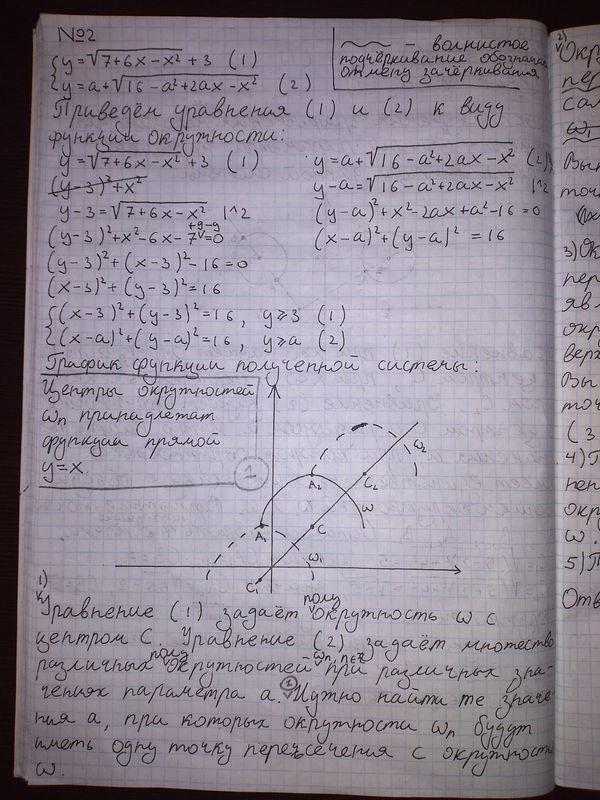 №2
{y=√7+6x-x² + 3 (1)
{y=a+√16-a²+2ax-x² (2)
~~~ - волнистое
подчёркивание обозначает
отмену зачёркивания
Приведём уравнения (1) и (2) к виду
функции окружности:
y=√7+6x-x² + 3 (1)
(y-3)²+x²
y-3=√7+6x-x² |^2
(y-3)²+x²-6x-7+9-9=0
(y-3)²+(x-3)²-16=0
(x-3)²+(y-3)²=16
y=a+√16-a²+2ax-x² (2)
y-a=√16-a²+2ax-x² |^2
(y-a)²+x²-2ax+a²-16=0
(x-a)²+(y-a)²=16
{(x-3)²+(y-3)²=16, y⩾3 (1)
{(x-a)²+(y-a)²=16, y⩾a (2)
График функции полученной системы:
Центры окружностей
ωn принадлежат
функции прямой
y=x
1
ω₂
A₂
C₂
A₁
C
ω
ω₁
C₁
1)
Уравнение (1) задаёт полуокружность ω с
центром C. Уравнение (2) задаёт множество
различных полуокружностей ωn, n∈ℤ при различных зна-
чениях параметра a. ① Нужно найти те значе-
ния a, при которых окружности ωn будут
иметь одну точку пересечения с окружность
ω.
2)
Окр
пер
сал
ω₁
Вы
точ
3) Ок
пер
явл
окру
верх
Вы
точ
(3
4) П
пен
окр
ω.
5) П
Отв